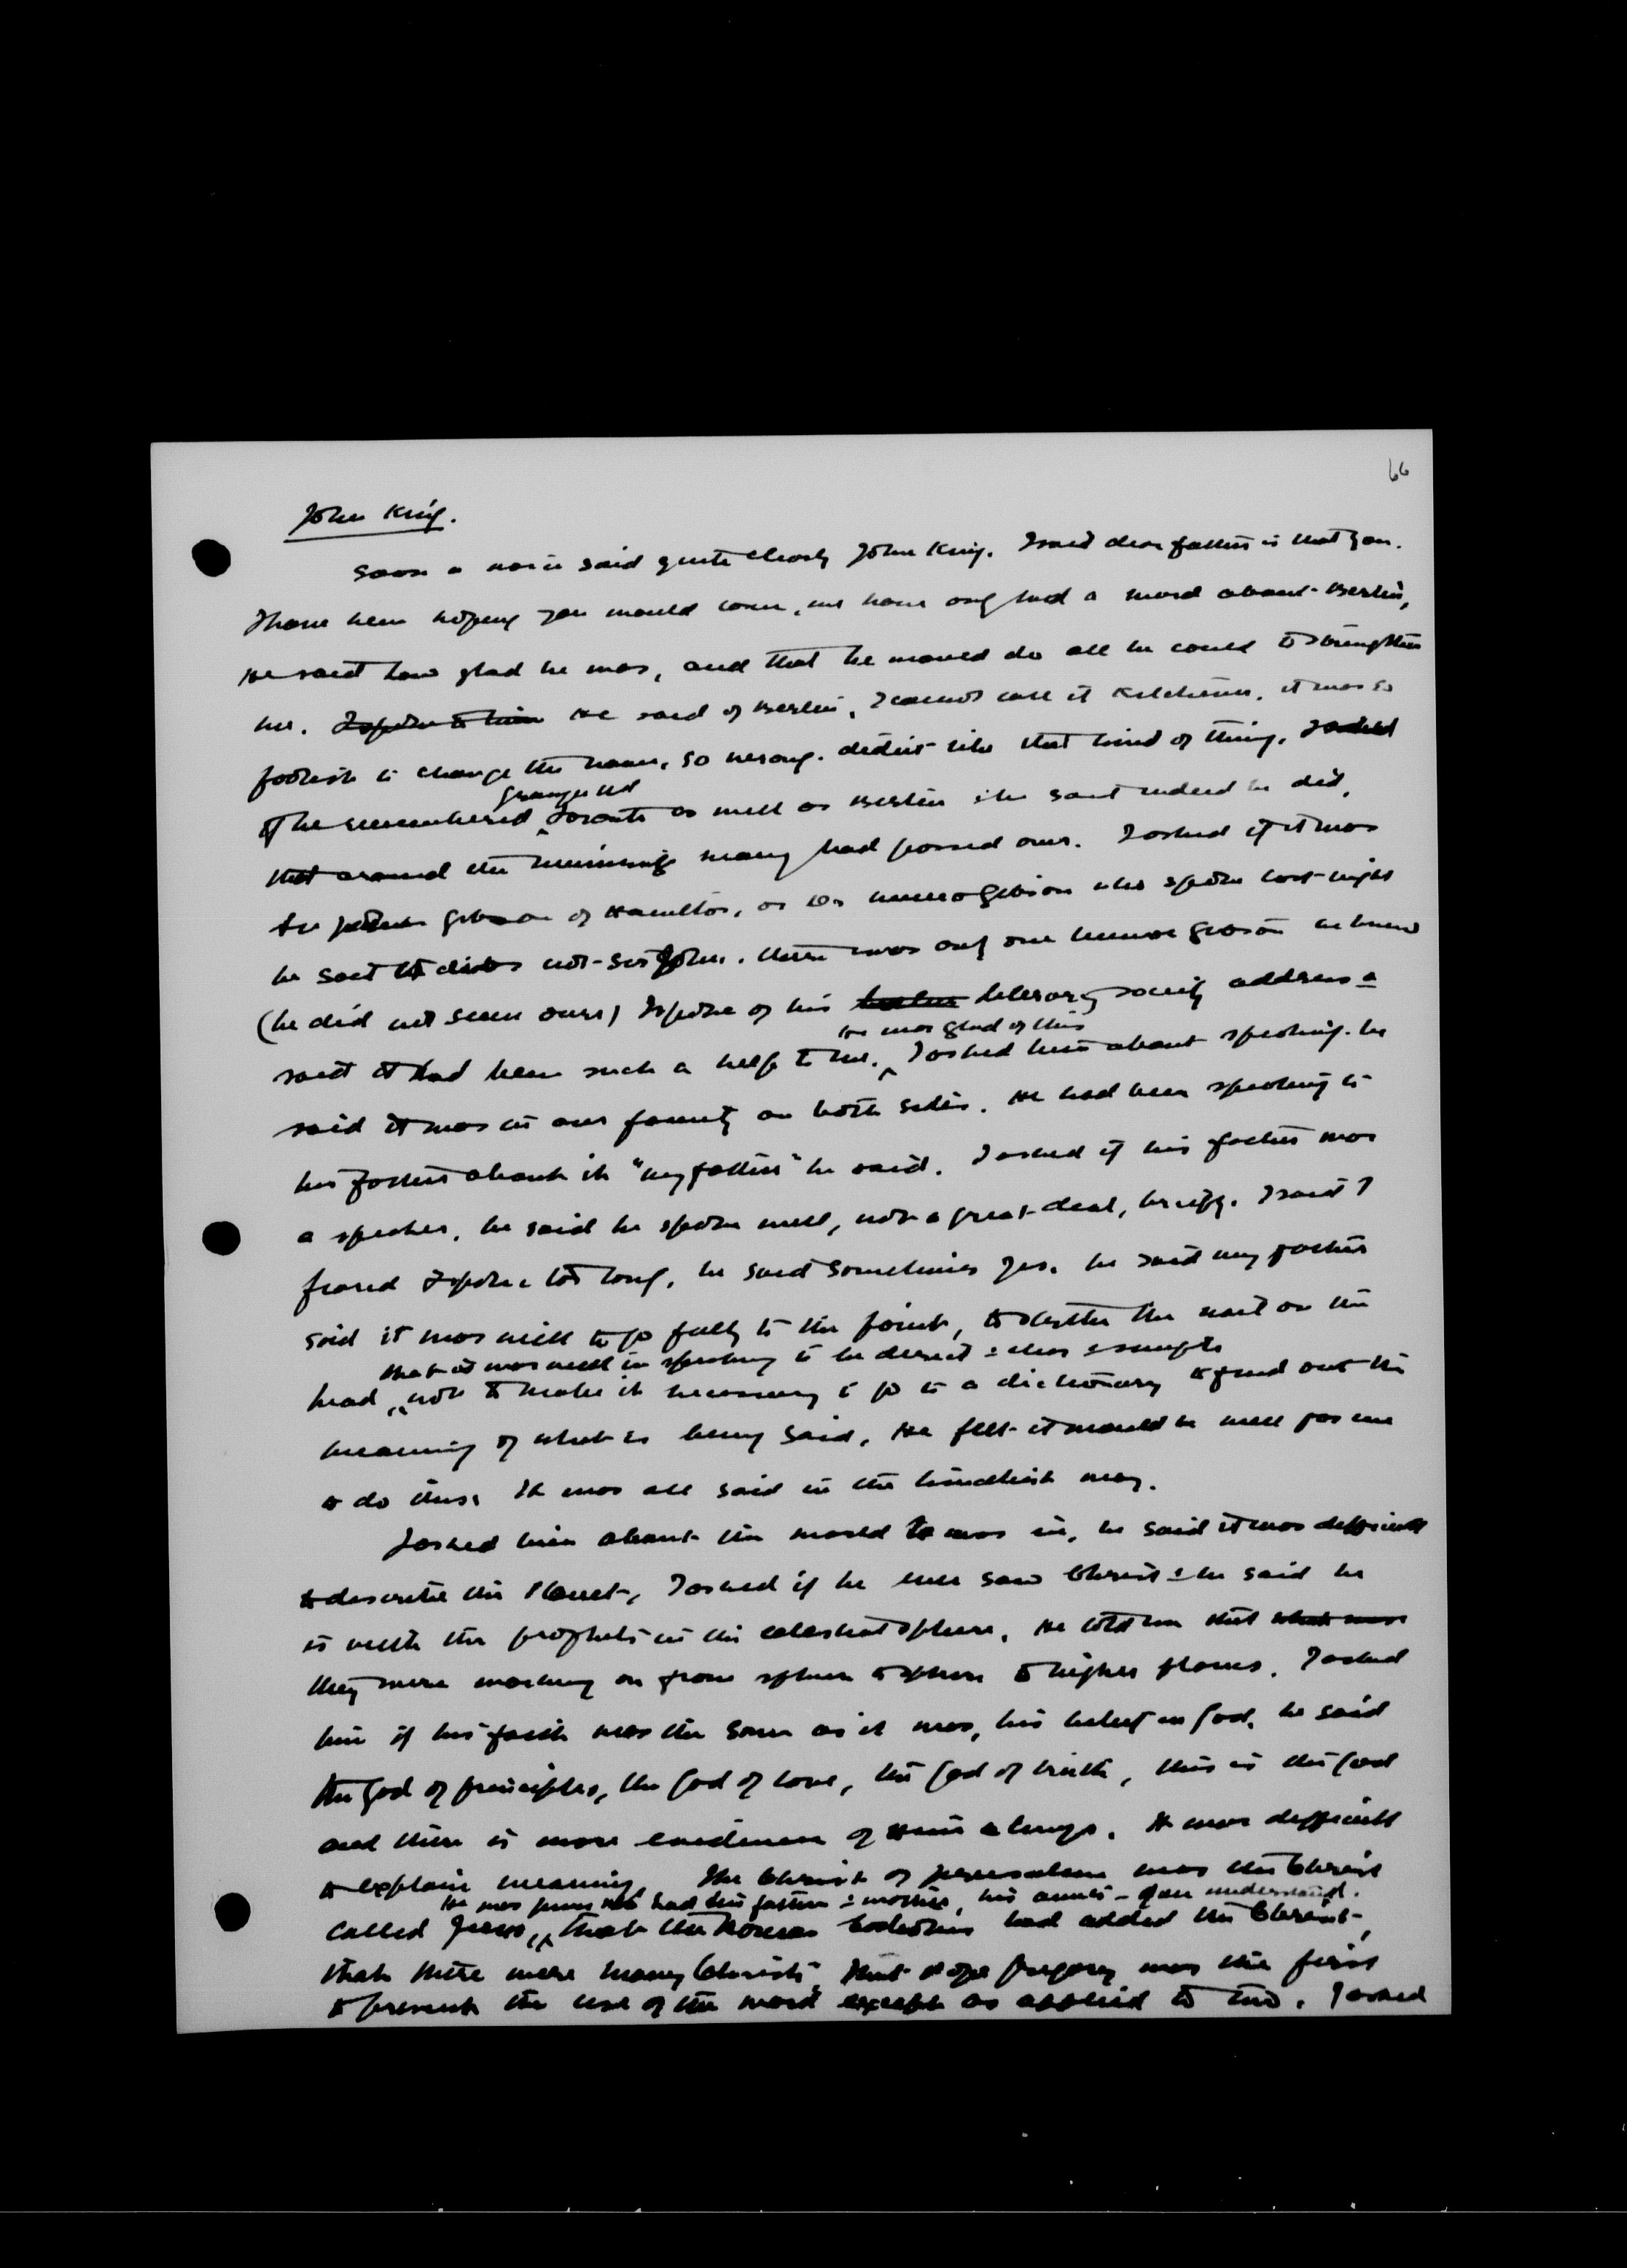 66
John King.
Soon a voice said quite clearly John King. I said dear father is that you.
I have been hoping you would come, we have only had a word about Berlin,
He said how glad he was, and that he would do all he could to strengthen
me. I spoke to him He said of Berlin, I cannot call it Kitchener, it was so
foolish to change the name, so wrong. didn't like that kind of thing. I asked
if he remembered Toronto as well as Berlin & he said indeed he did,
Grange Rd
that around the University many had passed over. I asked if it was
Sir John Gibson of Hamilton, or Dr Munro Gibson who spoke last night
he said it not Sir John. there was only one Munro Gibson he knew
(he did not seem sure) I spoke of his literary society address &
said it had been such a help to me. I asked him about speaking. he
He was glad of this
said it was in our family on both sides. He had been speaking to
his father about it "my father" he said. I asked if his father was
a speaker, he said he spoke well, not a great deal, briefly. I said I
feared I spoke too long, he said sometimes yes. he said my father
said it was well to go fully to the point, to hit the nail on the
that it was well in speaking to be direct & clear & simple
head, not to make it necessary to go to a dictionary to find out the
meaning of what is being said, He felt it would be well for me
to do this. It was all said in the kindliest way.
I asked him about the world he was in, he said it was difficult
to describe the Planet, I asked if he ever saw Christ & he said he
is with the prophets in the celestial sphere. He told me that what was
they were working on from sphere to sphere to higher planes. I asked
him if his faith was the same as it was, his belief in God, he said
the God of principles, the God of love, the God of truth, this is the God
and there is more evidence of Him always. It was difficult
to explain meaning. The Christ of Jerusalem was the Christ
He was Jesus had his father & mother, his aunts - you understand.
called Jesus, that the Roman Catholics had added the Christ,
that there were many Christs, that Pope Gregory was the first
to prevent the use of the word except as applied to I asked